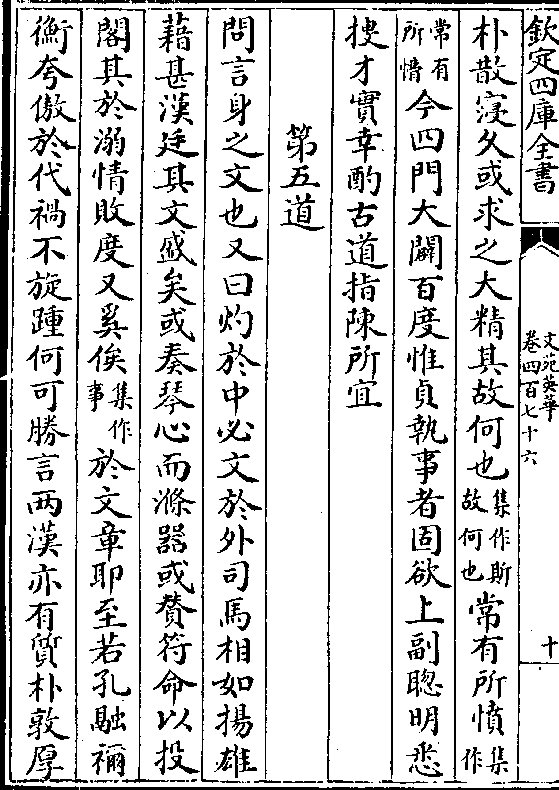 欽定四庫全書
文苑英華
卷四百七十六
十
朴散寖久或求之大精其故何也集作斯故何也常有所憤集作
常有所情今四門大闢百度惟貞執事者固欲上副聰明悉
搜才實幸酌古道指陳所宜
第五道
問言身之文也又曰灼於中必文於外司馬相如揚雄
藉甚漢廷其文盛矣或奏琴心而滌器或贊符命以投
閣其於溺情敗度又奚俟集作事於文章耶至若孔融禰
衡夸傲於代禍不旋踵何可勝言两漢亦有質朴敦厚